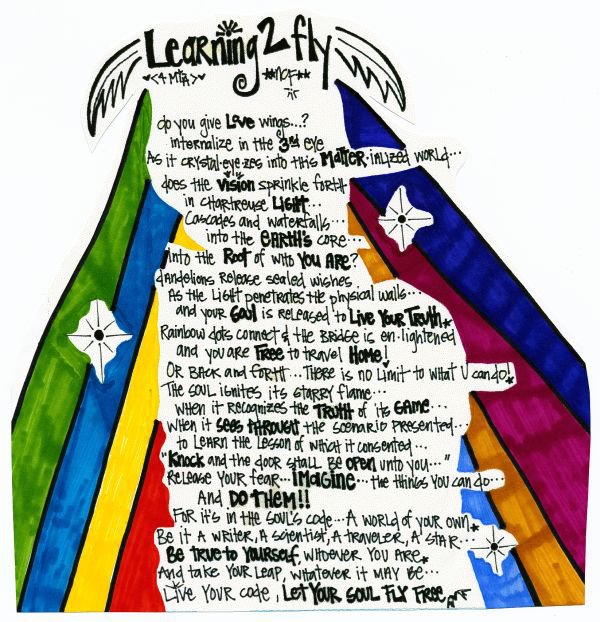 Learning 2 fly
<4 MTA> **NCF**
do you give Love wings...?
internalize in the 3rd eye
As it crystal-eye-zes into this MATTER-inlized world...
does the vision sprinkle forth
in chartreuse LIGHT...
Cascades and waterfalls...
into the EARTH'S core...
Into the Root of who YOU ARE?
dandelions release sealed wishes
As the Light penetrates the physical walls...
and your Soul is released to Live Your Truth
Rainbow dots connect & the Bridge is en-lightened
and you are FREE to travel Home!
OR BACK and forth... There is no Limit to what U can do!
The soul ignites its starry flame...
when it recognizes the TRUTH of its GAME...
when it SEES THROUGH the scenario presented...
to Learn the Lesson of which it consented...
"Knock and the door shall be open unto you..."
Release your fear... IMAGINE... the things you can do...
And DO THEM!!
FOR it's in the soul's code... A world of your own
Be it A writer, A scientist, A traveler, A STAR...
Be true to yourself, whoever YOU ARE
And take your leap, whatever it MAY Be...
Live Your code, Let Your Soul Fly Free